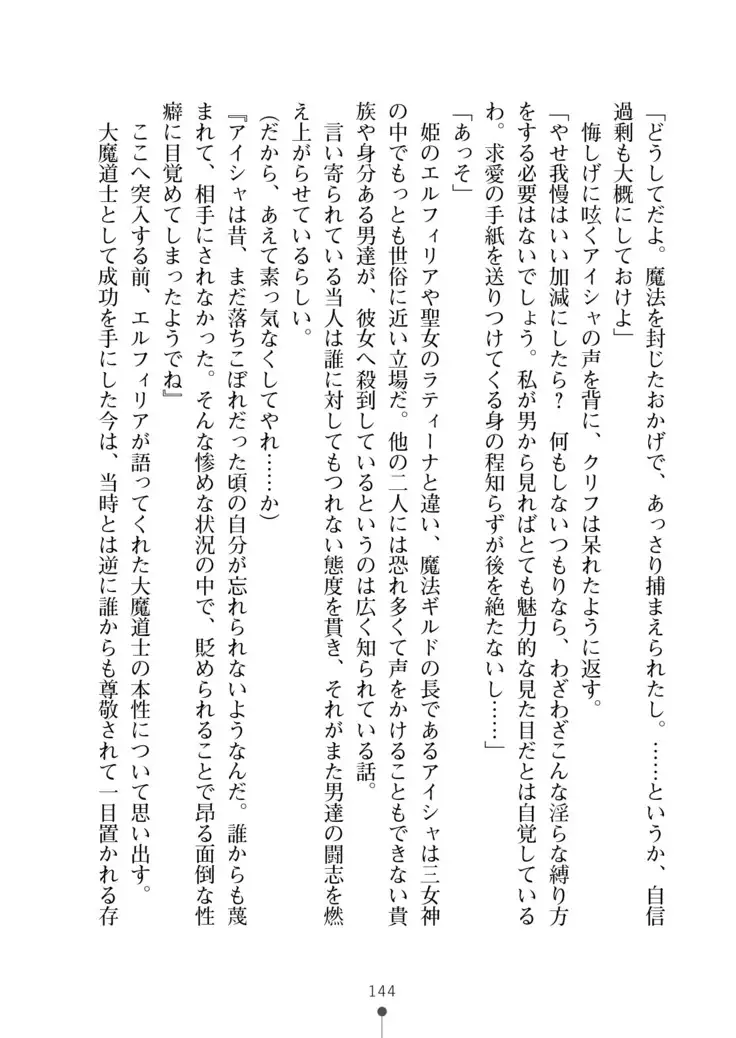 「どうしてだよ。魔法を封じたおかげで、あっさり捕まえられたし。……というか、自信
過剰も大概にしておけよ」
　悔しげに呟くアイシャの声を背に、クリフは呆れたように返す。
「やせ我慢はいい加減にしたら？　何もしないつもりなら、わざわざこんな淫らな縛り方
をする必要はないでしょう。私が男から見ればとても魅力的な見た目だとは自覚している
わ。求愛の手紙を送りつけてくる身の程知らずが後を絶たないし……」
「あっそ」
　姫のエルフィリアや聖女のラティーナと違い、魔法ギルドの長であるアイシャは三女神
の中でもっとも世俗に近い立場だ。他の二人には恐れ多くて声をかけることもできない貴
族や身分ある男達が、彼女へ殺到しているというのは広く知られている話。
　言い寄られている当人は誰に対してもつれない態度を貫き、それがまた男達の闘志を燃
え上がらせているらしい。
（だから、あえて素っ気なくしてやれ……か）
『アイシャは昔、まだ落ちこぼれだった頃の自分が忘れられないようなんだ。誰からも蔑
まれて、相手にされなかった。そんな惨めな状況の中で、貶められることで昂る面倒な性
癖に目覚めてしまったようでね』
　ここへ突入する前、エルフィリアが語ってくれた大魔道士の本性について思い出す。
　大魔道士として成功を手にした今は、当時とは逆に誰からも尊敬されて一目置かれる存
144